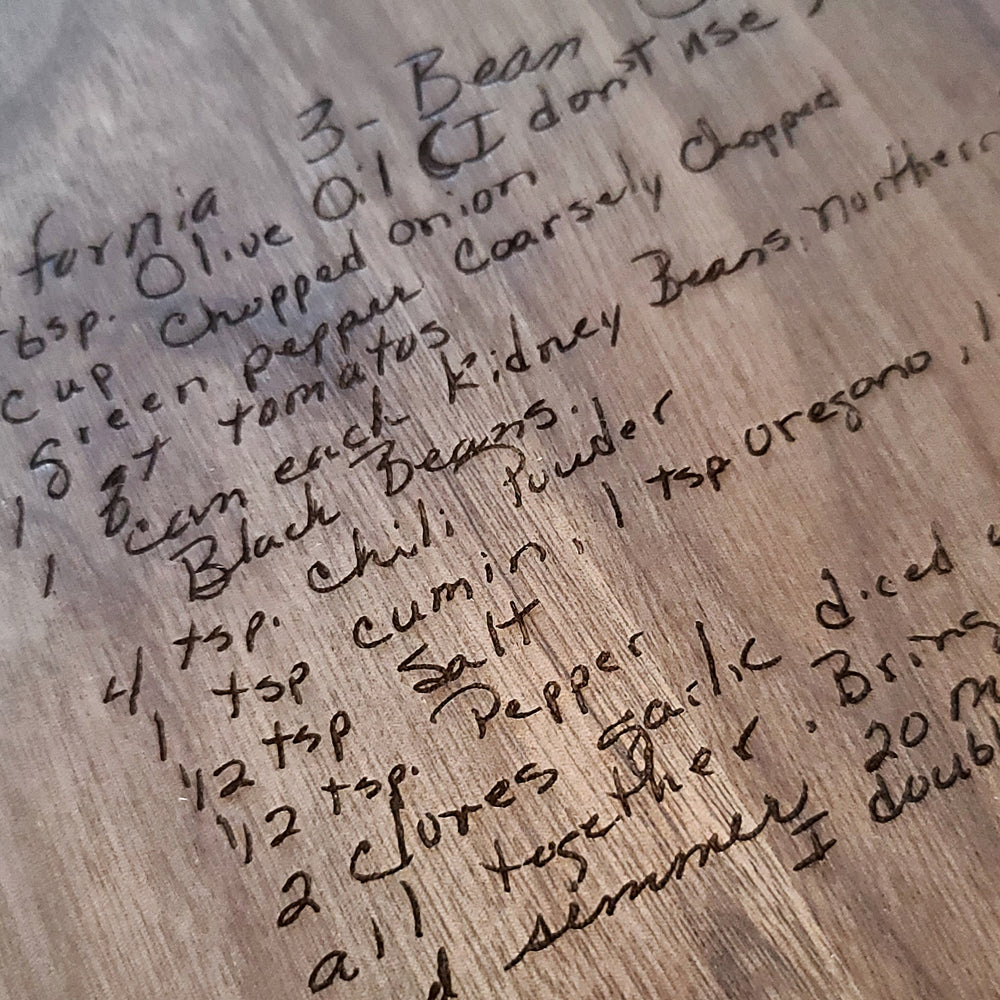 3- Bean
fornia Olive Oil (I don't use
tbsp. Chopped onion
cup green pepper Coarsely Chopped
1 qt tomatos
1 can each Kidney Beans, northern
Black Beans.
4 tsp. chili Powder
1 tsp cumin, 1 tsp oregano, 1
1/2 tsp Salt
1/2 tsp. Pepper
2 cloves garlic diced
all together. Bring
d simmer 20 m
I doubl